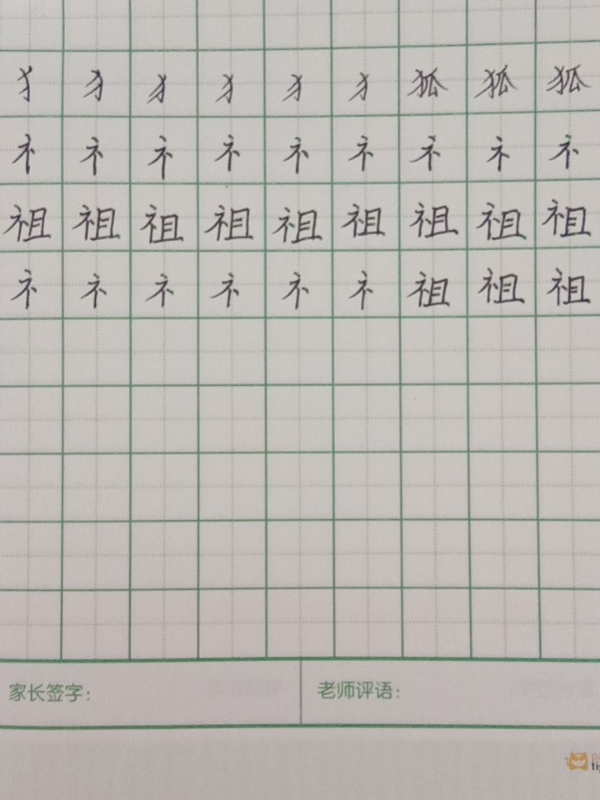 犭 犭 犭 犭 犭 犭 狐 狐 狐
礻 礻 礻 礻 礻 礻 礻 礻 礻
祖 祖 祖 祖 祖 祖 祖 祖 祖
礻 礻 礻 礻 礻 礻 祖 祖 祖
家长签字: 老师评语: